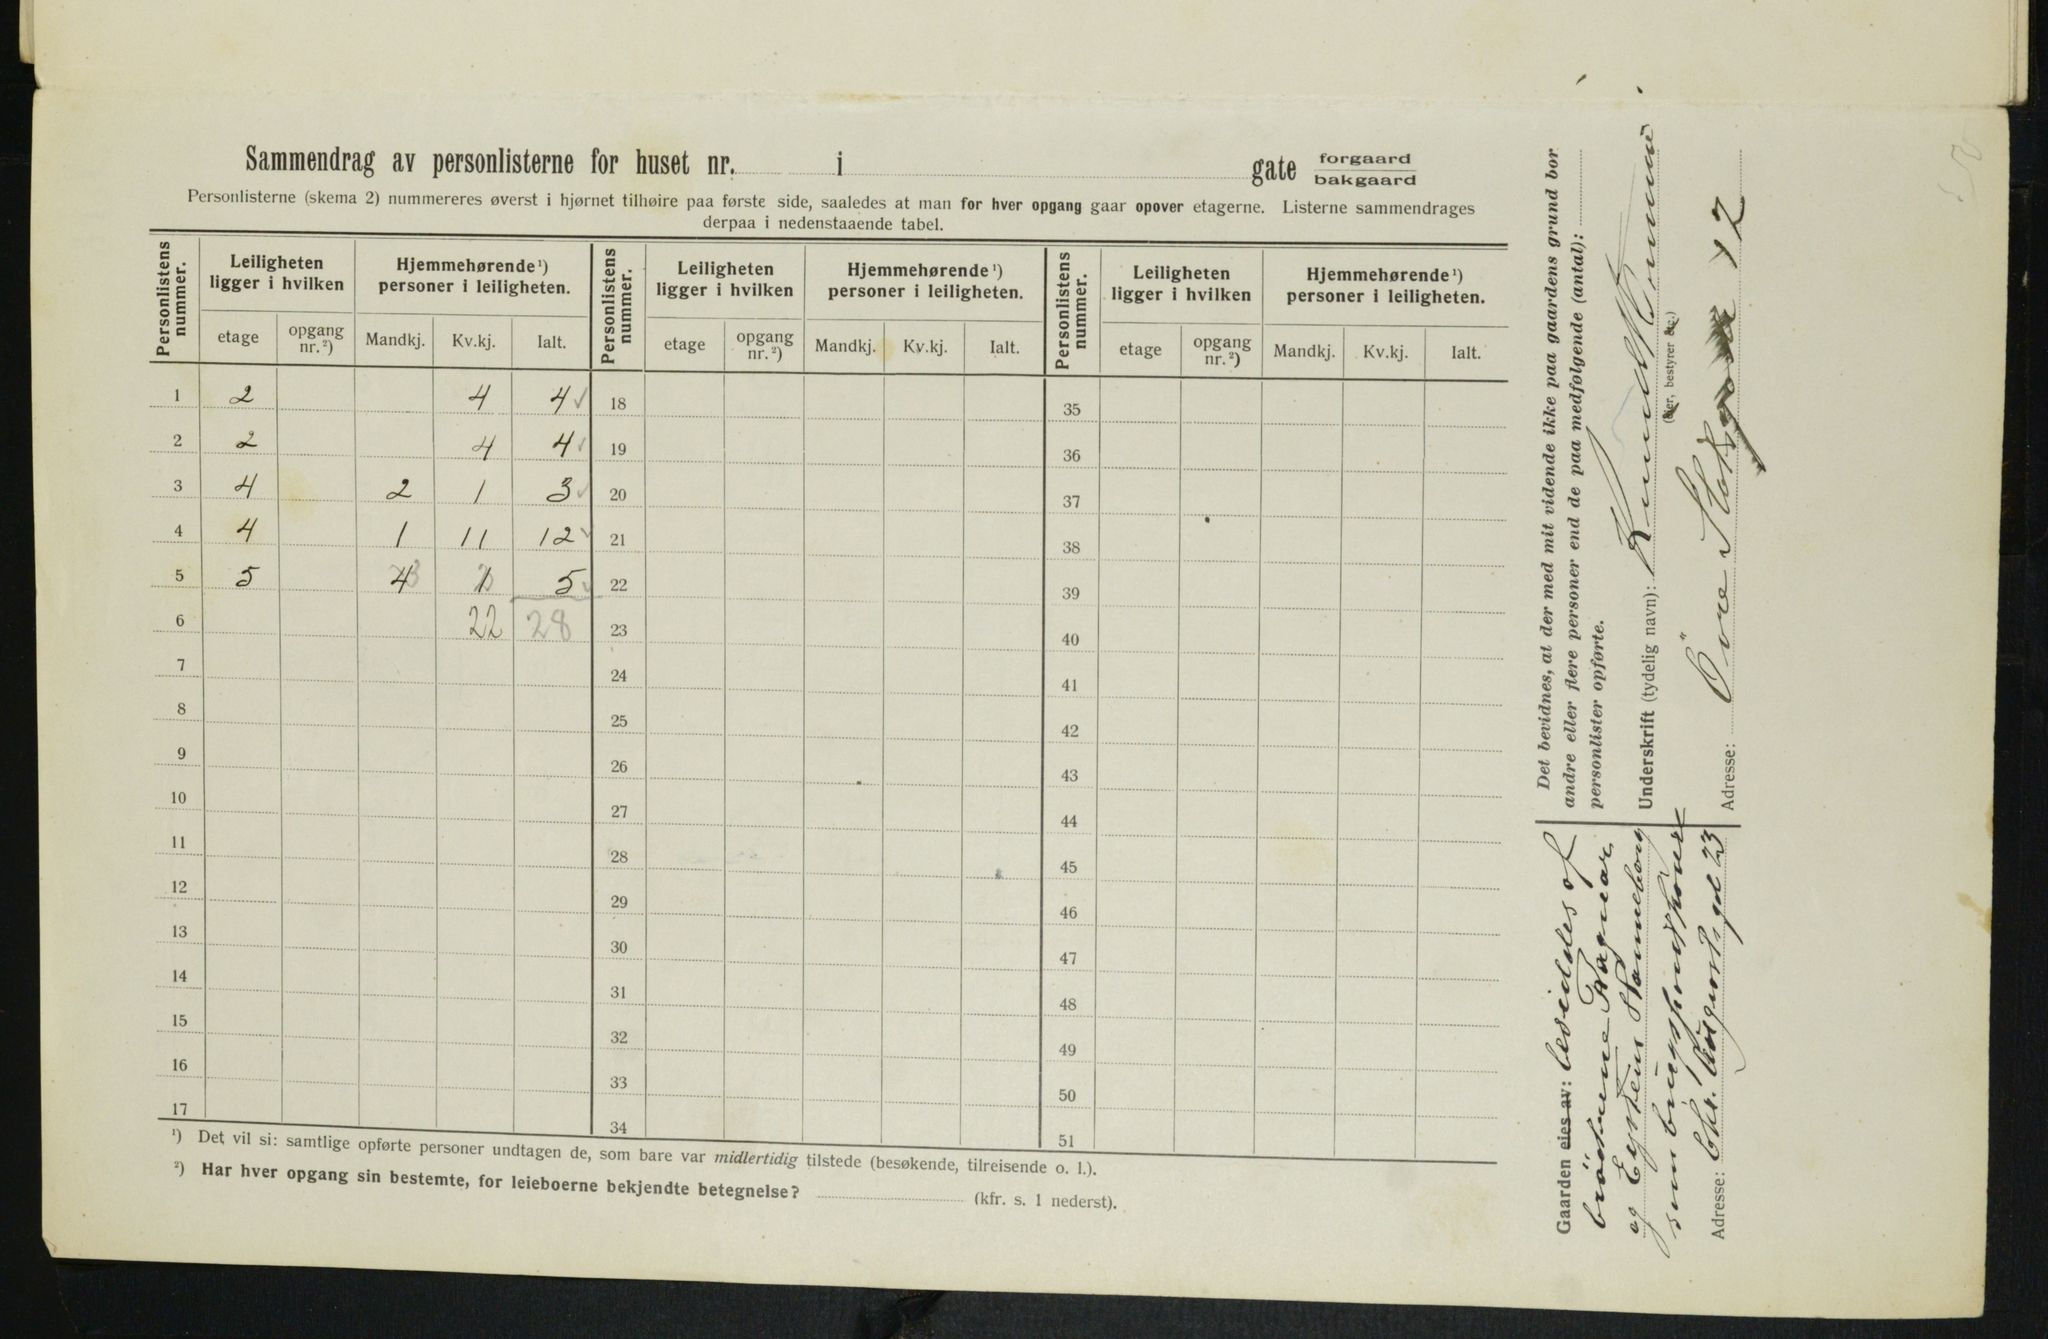 Sammendrag av personlisterne for huset nr. i gate forgaard bakgaard
Personlisterne (skema 2) nummereres øverst i hjørnet tilhøire paa første side, saaledes at man for hver opgang gaar opover etagerne. Listerne sammendrages
derpaa i nedenstaaende tabel.
Personlistens nummer. Leiligheten ligger i hvilken Hjemmehørende¹) personer i leiligheten. Personlistens nummer. Leiligheten ligger i hvilken Hjemmehørende¹) personer i leiligheten. Personlistens nummer. Leiligheten ligger i hvilken Hjemmehørende¹) personer i leiligheten.
etage opgang nr.²) Mandkj. Kv.kj. Ialt. etage opgang nr.²) Mandkj. Kv.kj. Ialt. etage opgang nr.²) Mandkj. Kv.kj. Ialt.
1 2 4 4 ✓ 18 35
2 2 4 4 ✓ 19 36
3 4 2 1 3 ✓ 20 37
4 4 1 11 12 ✓ 21 38
5 5 4 3 1 2 5 ✓ 22 39
6 22 28 23 40
7 24 41
8 25 42
9 26 43
10 27 44
11 28 45
12 29 46
13 30 47
14 31 48
15 32 49
16 33 50
17 34 51
¹) Det vil si: samtlige opførte personer undtagen de, som bare var midlertidig tilstede (besøkende, tilreisende o. l.).
²) Har hver opgang sin bestemte, for leieboerne bekjendte betegnelse? (kfr. s. 1 nederst).
Det bevidnes, at der med mit vidende ikke paa gaardens grund bor
andre eller flere personer end de paa medfølgende (antal):
personlister opførte.
Underskrift (tydelig navn): Knud
(Eier, bestyrer etc.)
Adresse: Övre Slotsgate 12
Gaarden eies av: besiddes af
brödrene Ragnar
og Eystein Hanneborg
som
Adresse: Chr. Augustsgd 23